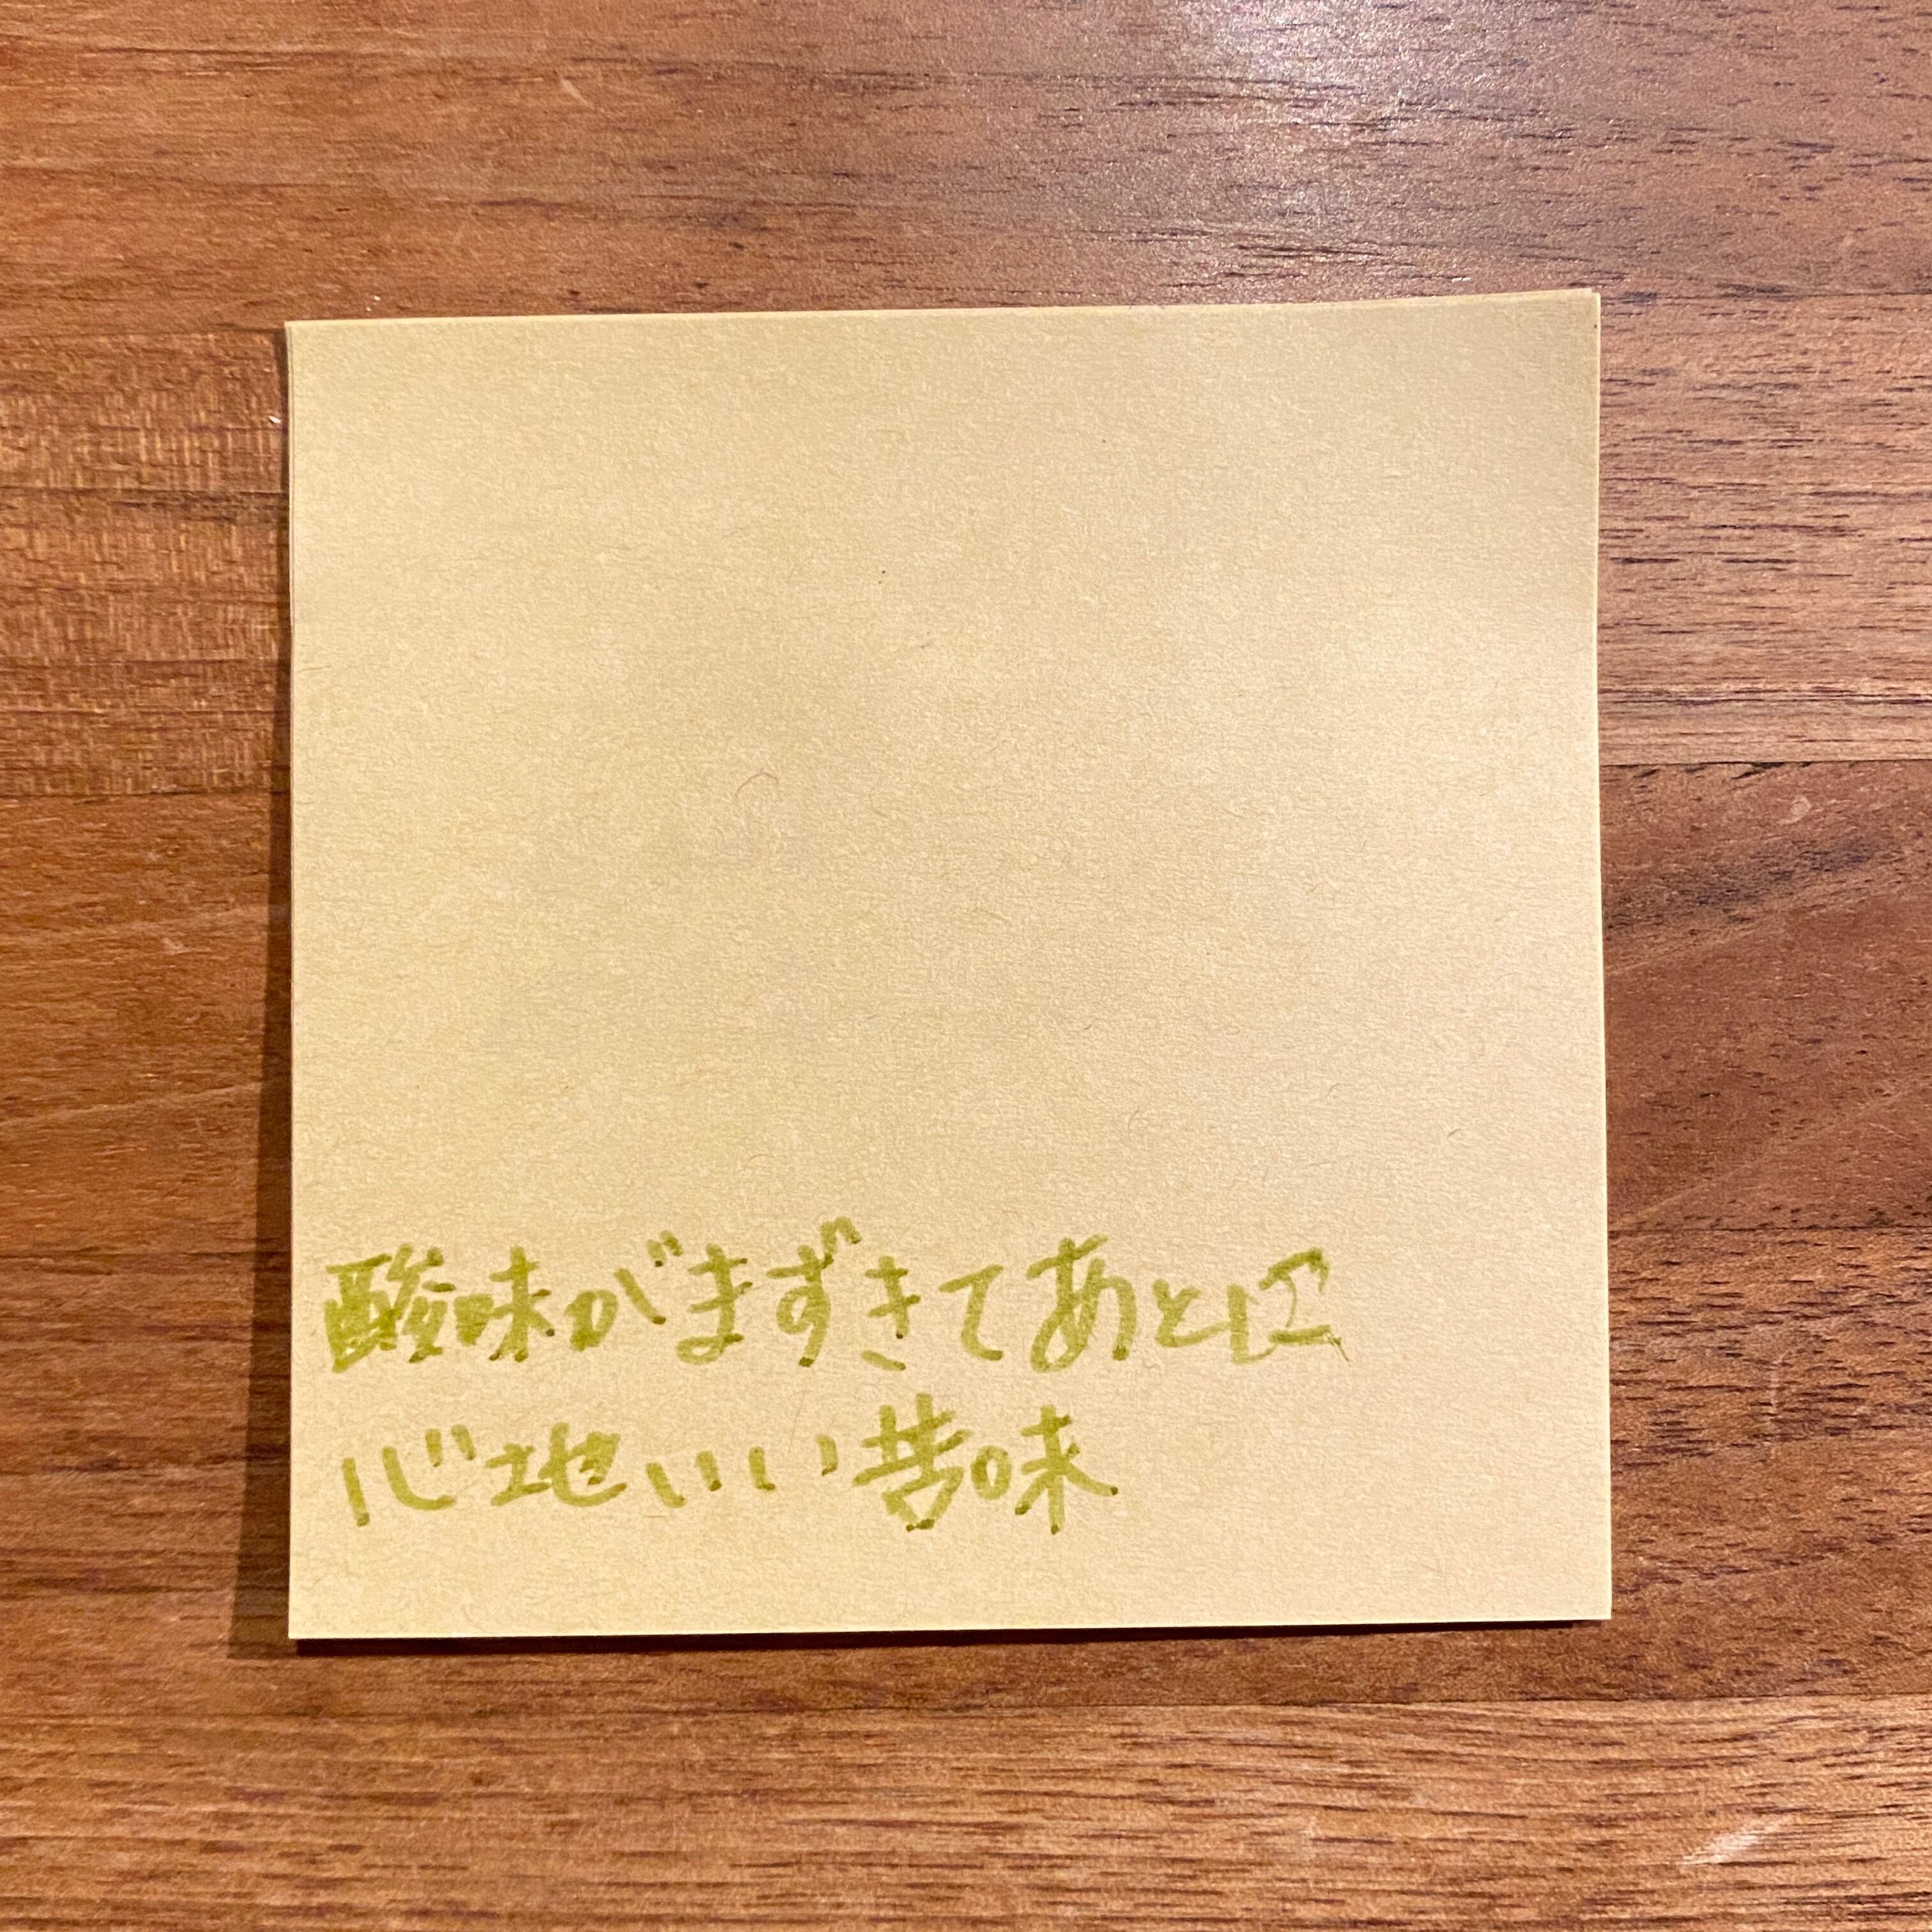 酸味がまずきてあとに
心地いい苦味